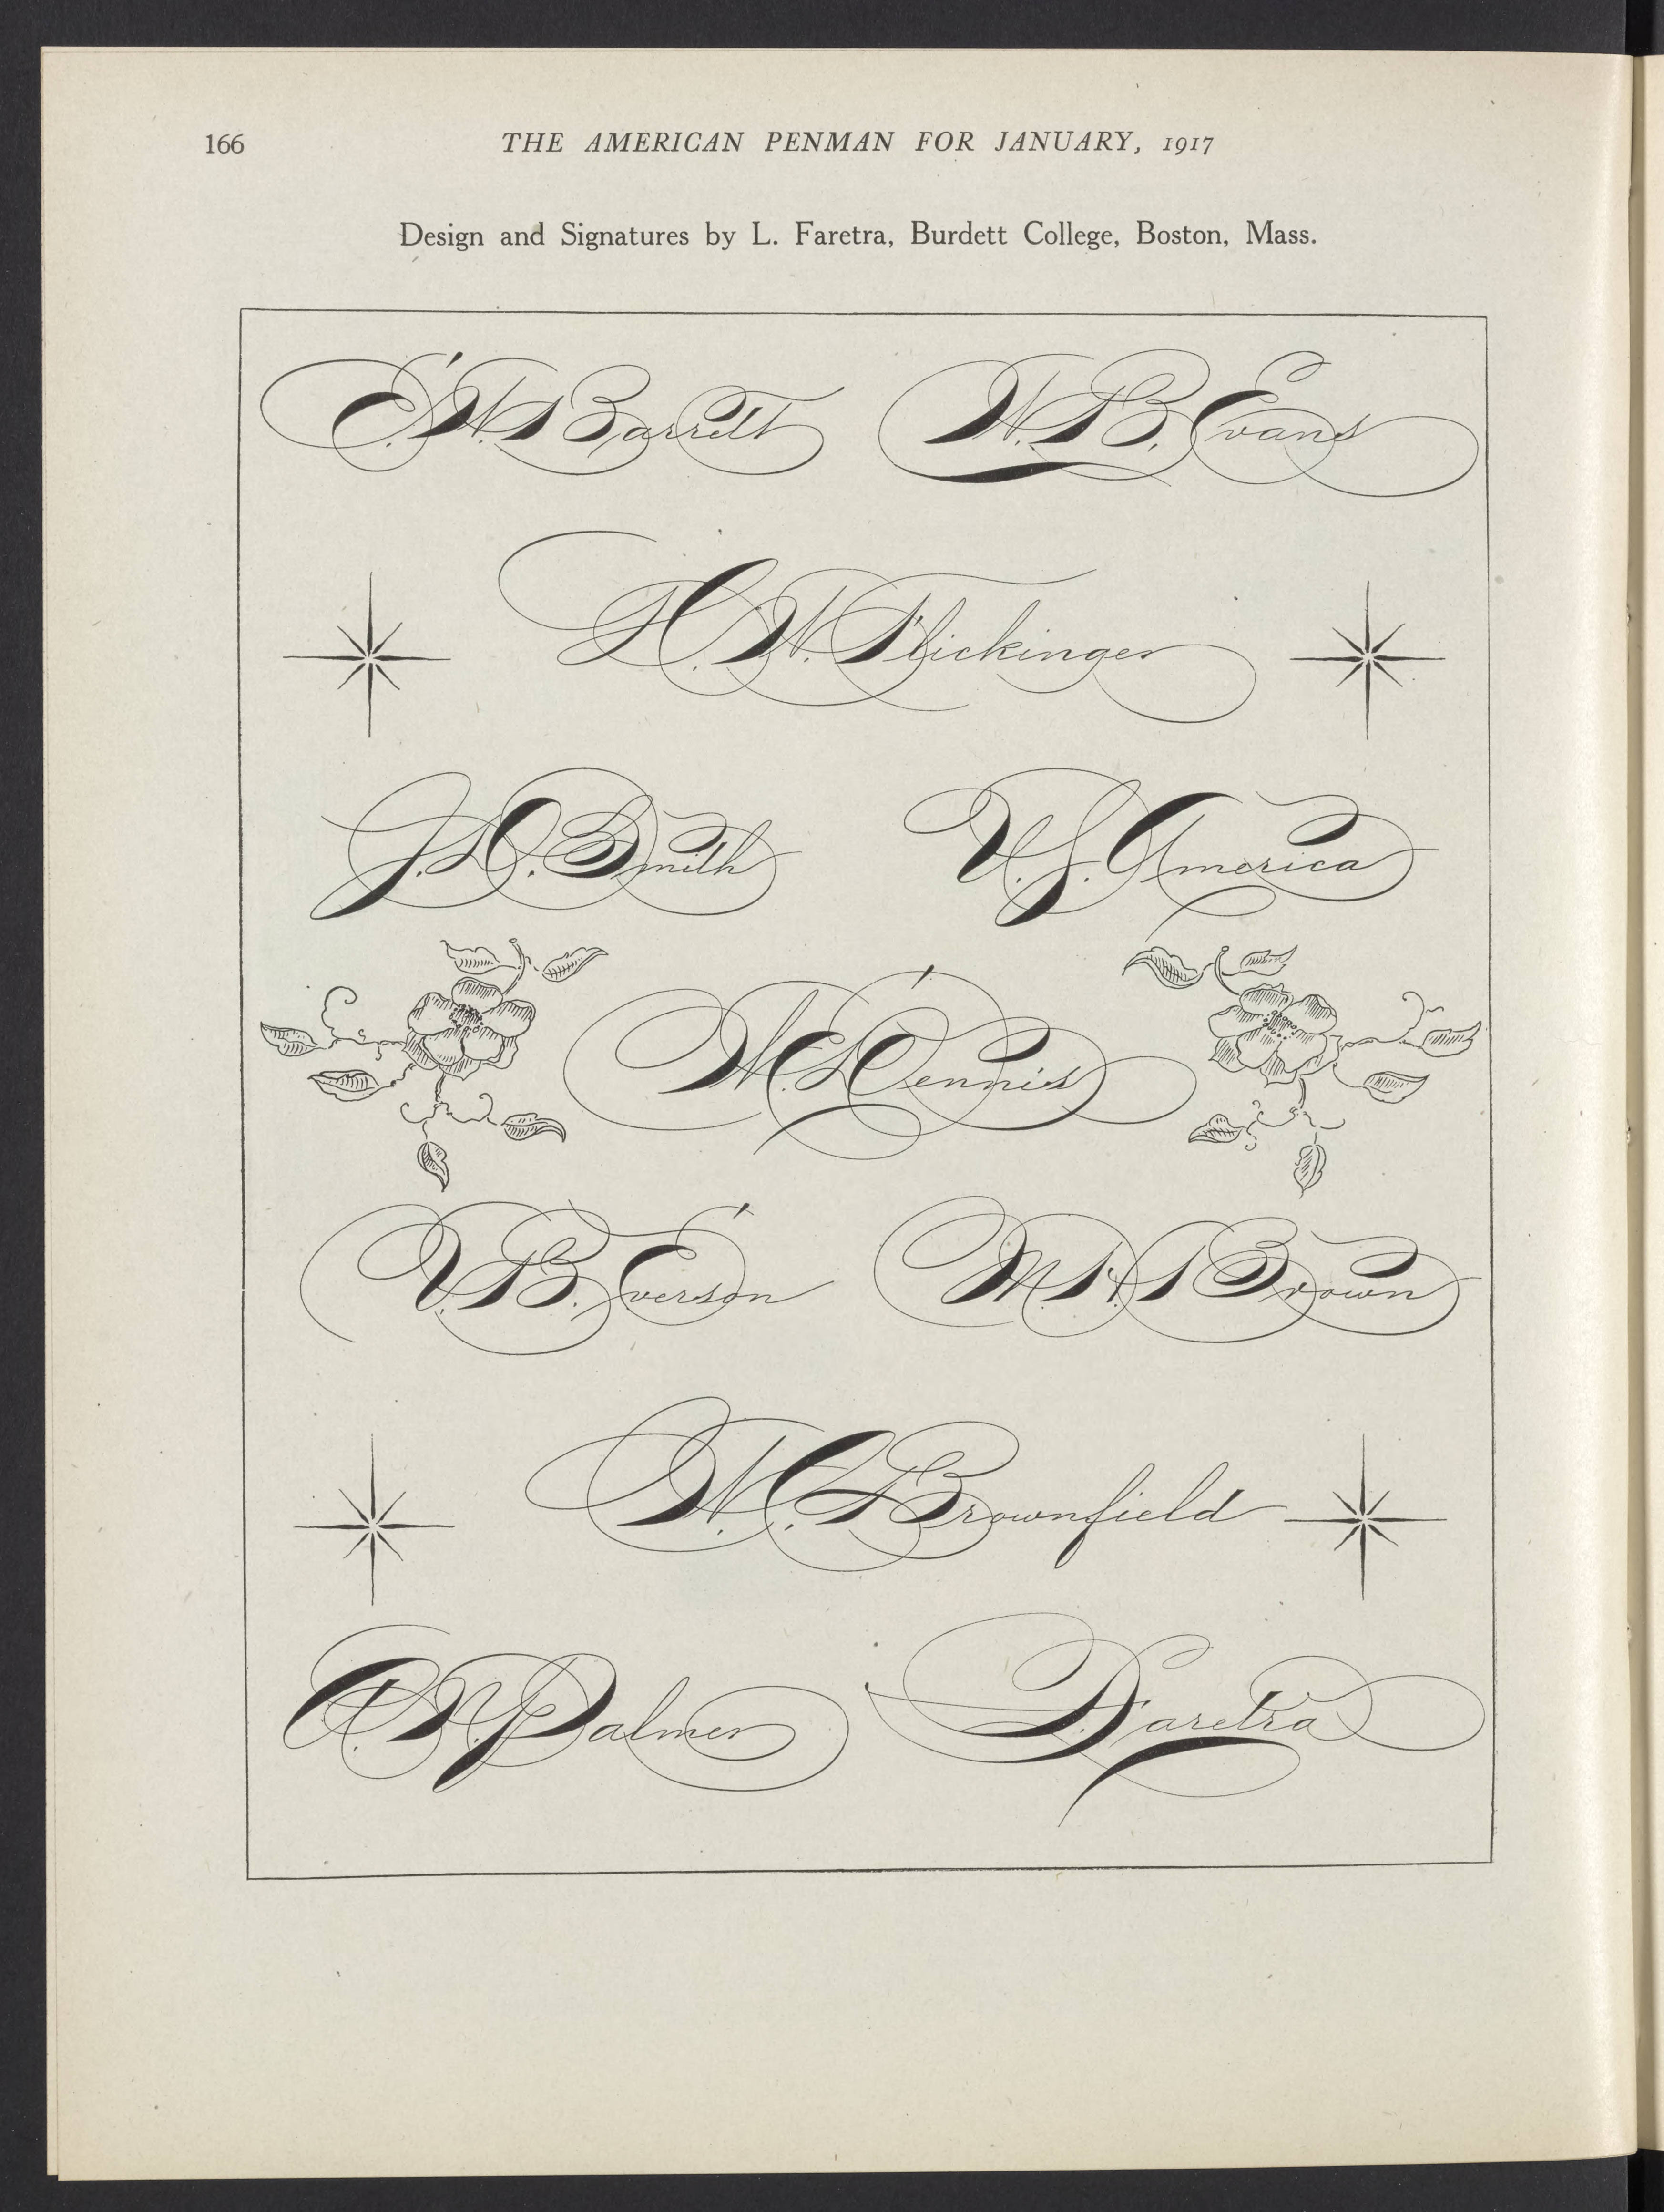 166
THE AMERICAN PENMAN FOR JANUARY, 1917
Design and Signatures by L. Faretra, Burdett College, Boston, Mass.
E. W. Barrett W. B. Evans
H. W. Flickinger
J. O. Smith U. S. America
W. E. Dennis
V. B. Everson M. H. Brown
W. C. Brownfield
A. N. Palmer L. Faretra